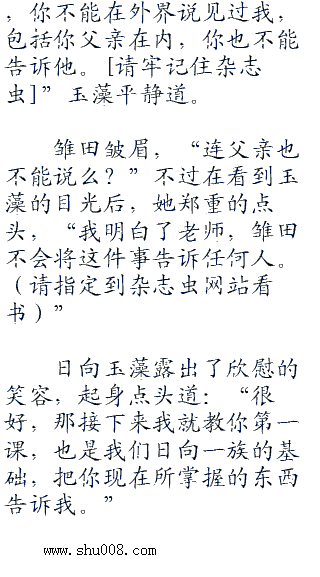 ，你不能在外界说见过我，
包括你父亲在内，你也不能
告诉他。[请牢记住杂志
虫]”玉藻平静道。
雏田皱眉，“连父亲也
不能说么？”不过在看到玉
藻的目光后，她郑重的点
头，“我明白了老师，雏田
不会将这件事告诉任何人。
（请指定到杂志虫网站看
书）”
日向玉藻露出了欣慰的
笑容，起身点头道：“很
好，那接下来我就教你第一
课，也是我们日向一族的基
础，把你现在所掌握的东西
告诉我。”
www.shu008.com